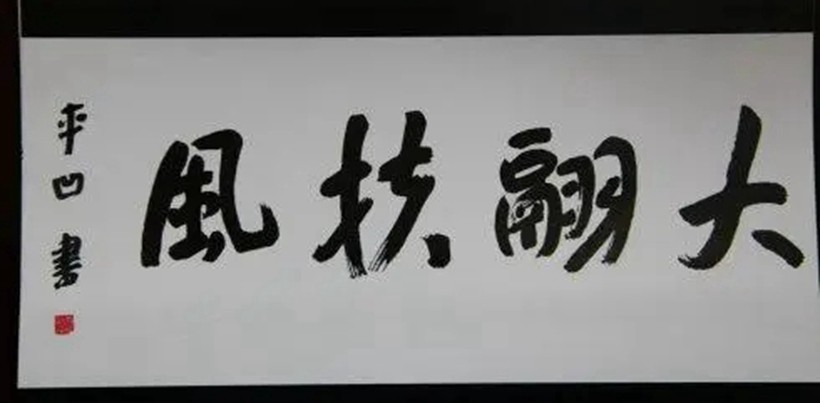 大翮扶風
平凹書